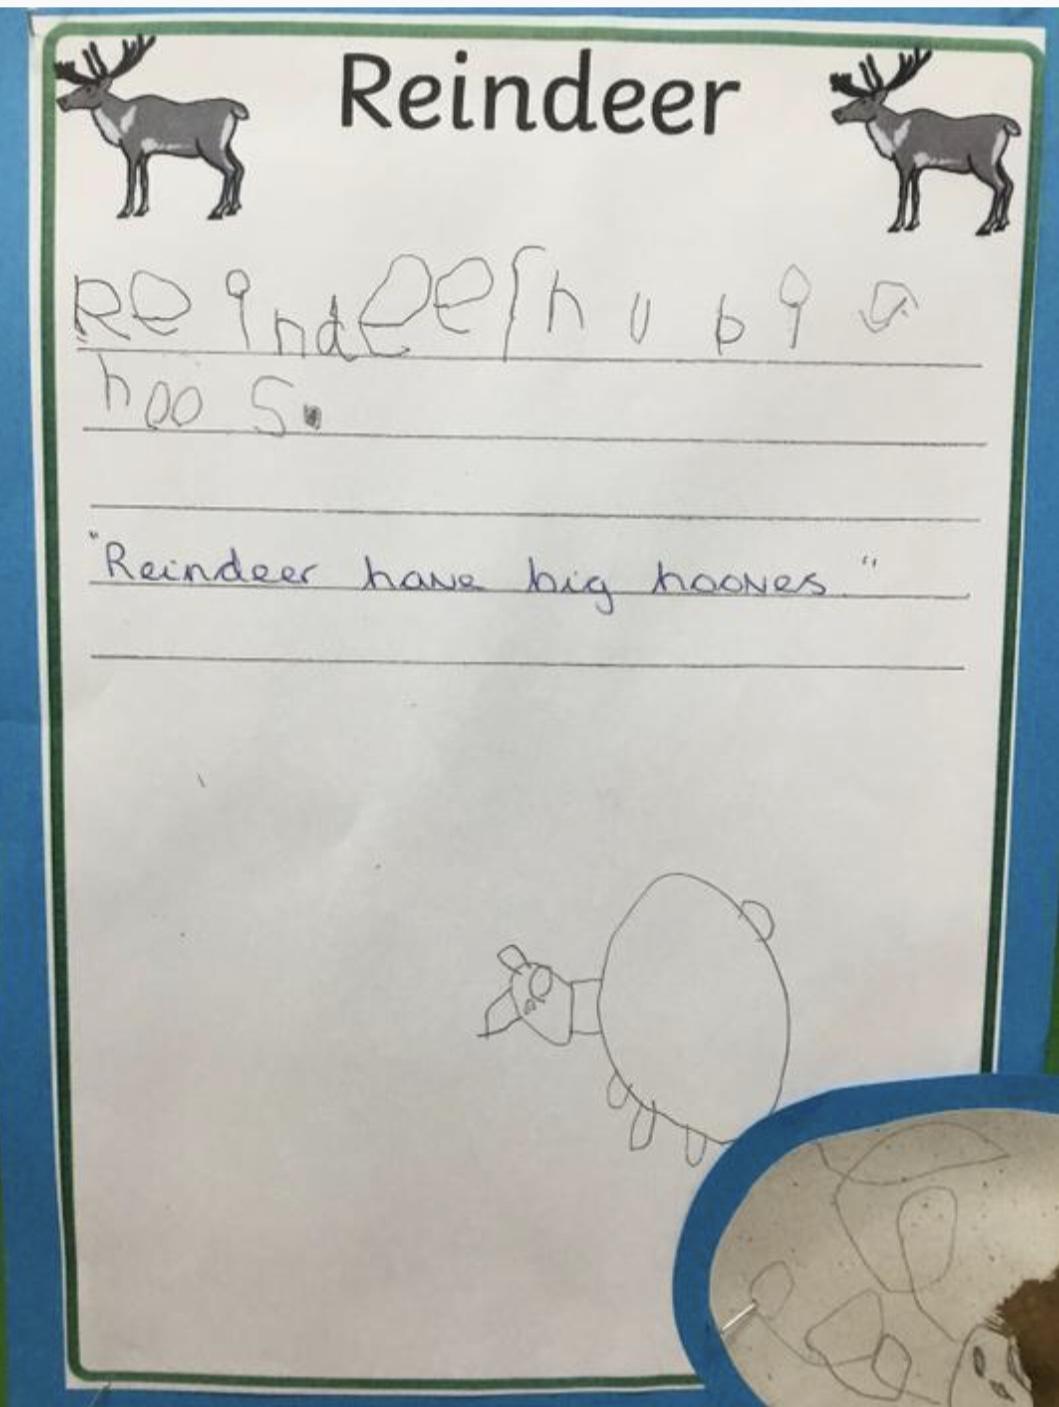 Reindeer
Reindeer h u b i g
hoo s.
"Reindeer have big hooves."